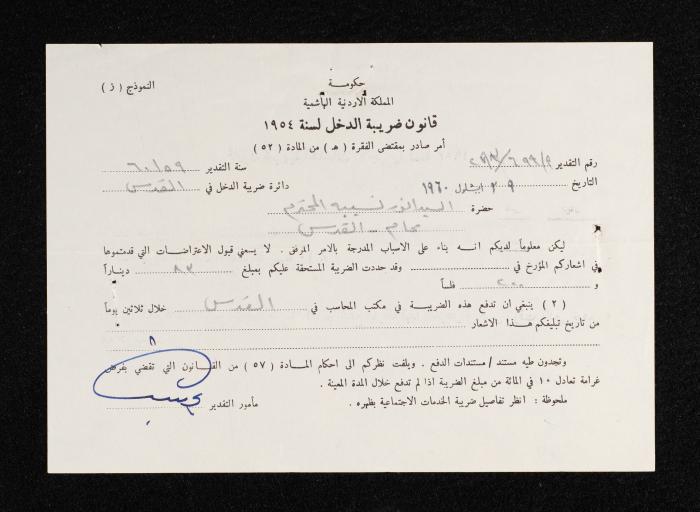 النموذج ( ز )
حكومـــة
المملكة الاردنية الهاشمية
قانون ضريبة الدخل لسنة ١٩٥٤
أمر صادر بمقتضى الفقرة ( هـ ) من المادة ( ٥٢ )
رقم التقدير
سنة التقدير ٦٠/٥٩
التاريخ ٢٩ ايلول ١٩٦٠ دائرة ضريبة الدخل في القدس
حضرة السيد انور نسيبه المحترم
محام - القدس
ليكن معلوماً لديكم انـه بناء على الاسباب المدرجة بالامر المرفق . لا يسعني قبول الاعتراضـات التي قدمتموها
في اشعاركم المؤرخ في وقد حددت الضريبة المستحقة عليكم بمبلغ ٨٢ دينـاراً
و ٢٠٠ فلسـاً
( ٢ ) ينبغي ان تدفع هذه الضريبـة في مكتب المحاسب في القدس خلال ثلاثين يوماً
من تاريخ تبليغكم هــذا الاشعار
وتجدون طيه مستند / مستندات الدفع . ويلفت نظركم الى احكام المـادة ( ٥٧ ) من القـانون التي تقضي بفرض
غرامة تعادل ١٠ في المائة من مبلغ الضريبة اذا لم تدفع خلال المدة المعينة .
ملحوظة : انظر تفاصيل ضريبة الخدمات الاجتماعية بظهره .
مأمور التقدير